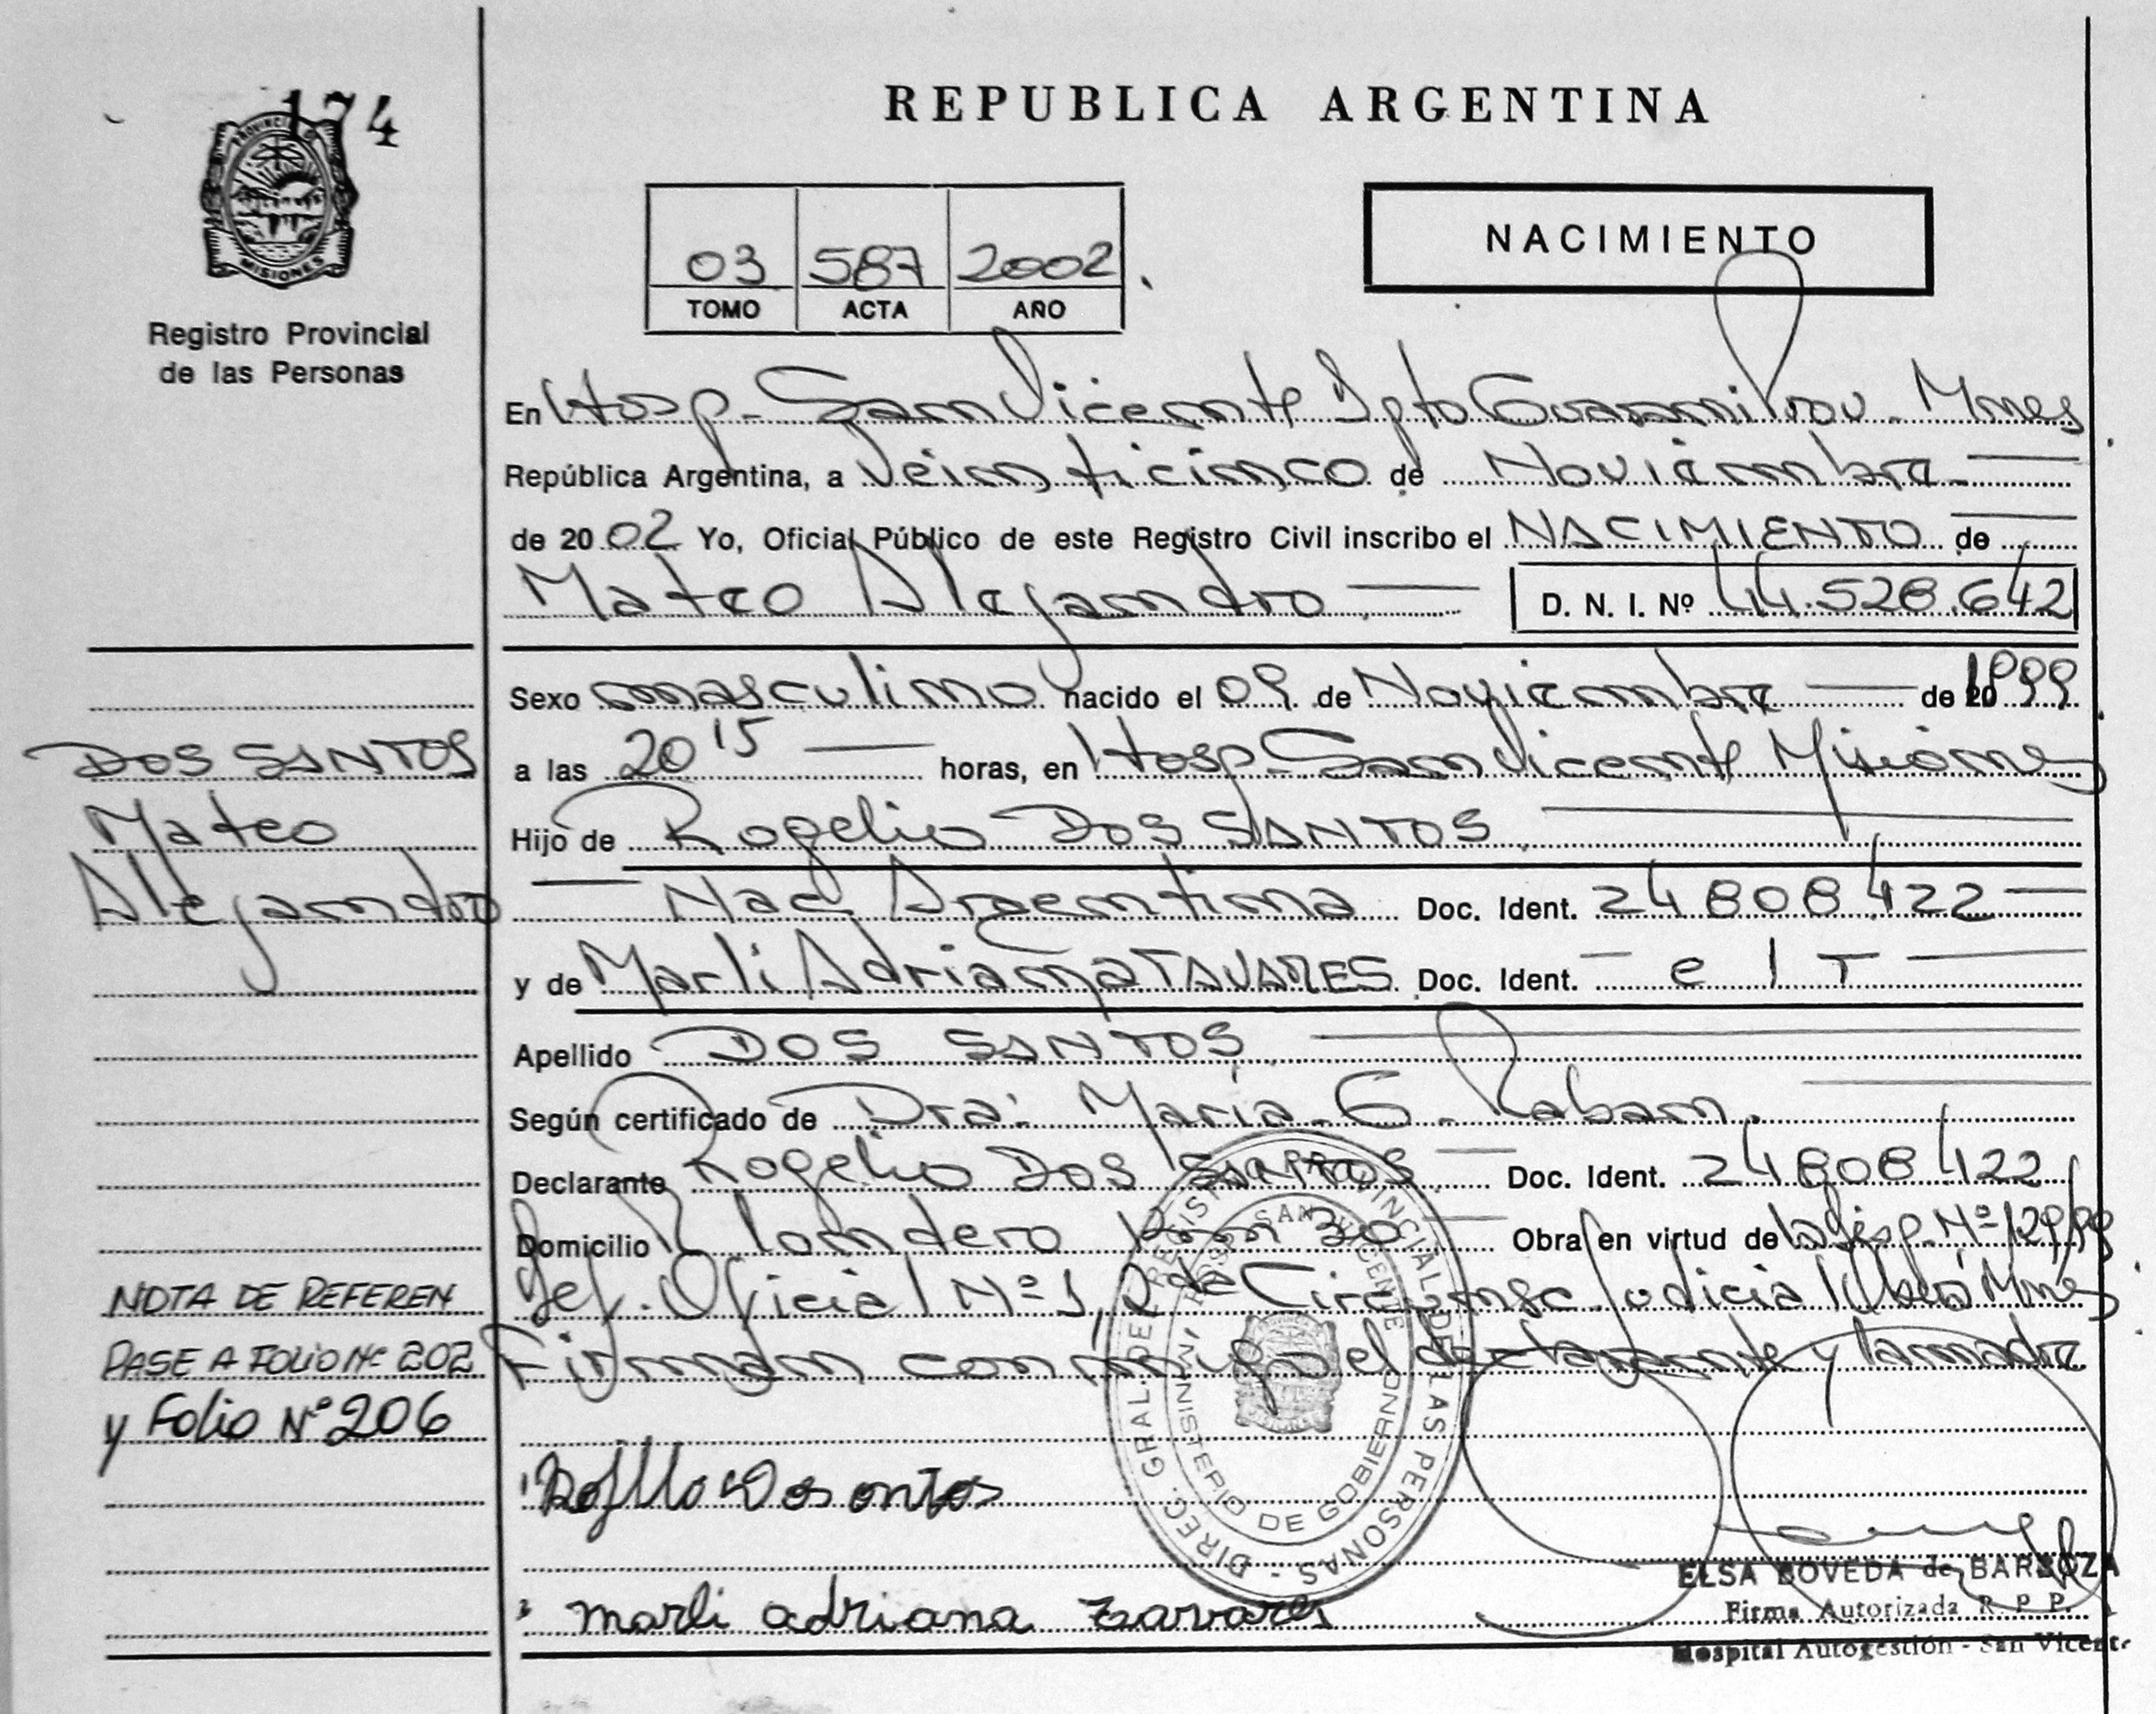 174
PROVINCIA DE
MISIONES
Registro Provincial
de las Personas
REPUBLICA ARGENTINA
03 587 2002
TOMO ACTA AÑO
NACIMIENTO
En Hosp. San Vicente Dpto Guarani Prov. Mnes
República Argentina, a Veinticinco de Noviembre
de 2002 Yo, Oficial Público de este Registro Civil inscribo el NACIMIENTO de
Mateo Alejandro D. N. I. Nº 44.528.642
Sexo masculino nacido el 09 de Noviembre de 1999
a las 20 15 horas, en Hosp. San Vicente Misiones
Hijo de Rogelio DOS SANTOS
Nac. Argentina Doc. Ident. 24 808 422
y de Marli Adriana TAVARES Doc. Ident. e I T
Apellido DOS SANTOS
Según certificado de Dra: Maria G.
Declarante Rogelio DOS SANTOS Doc. Ident. 24 808 422
Domicilio Km 30 Obra en virtud de la Disp. Nº
Def. Oficial Nº 1, 2da Circunsc. Judicial Oberá Mnes
Firman conmigo el declarante y la madre
DOS SANTOS
Mateo
Alejandro
NOTA DE REFEREN
PASE A FOLIO Nº 202
y Folio Nº 206
marli adriana tavares
DIREC. GRAL. DEL REGISTRO PROVINCIAL DE LAS PERSONAS -
MINISTERIO DE GOBIERNO
HOSP. SAN VICENTE
ELSA BOVEDA de BARBOZA
Firma Autorizada R. P. P.
Hospital Autogestión - San Vicente